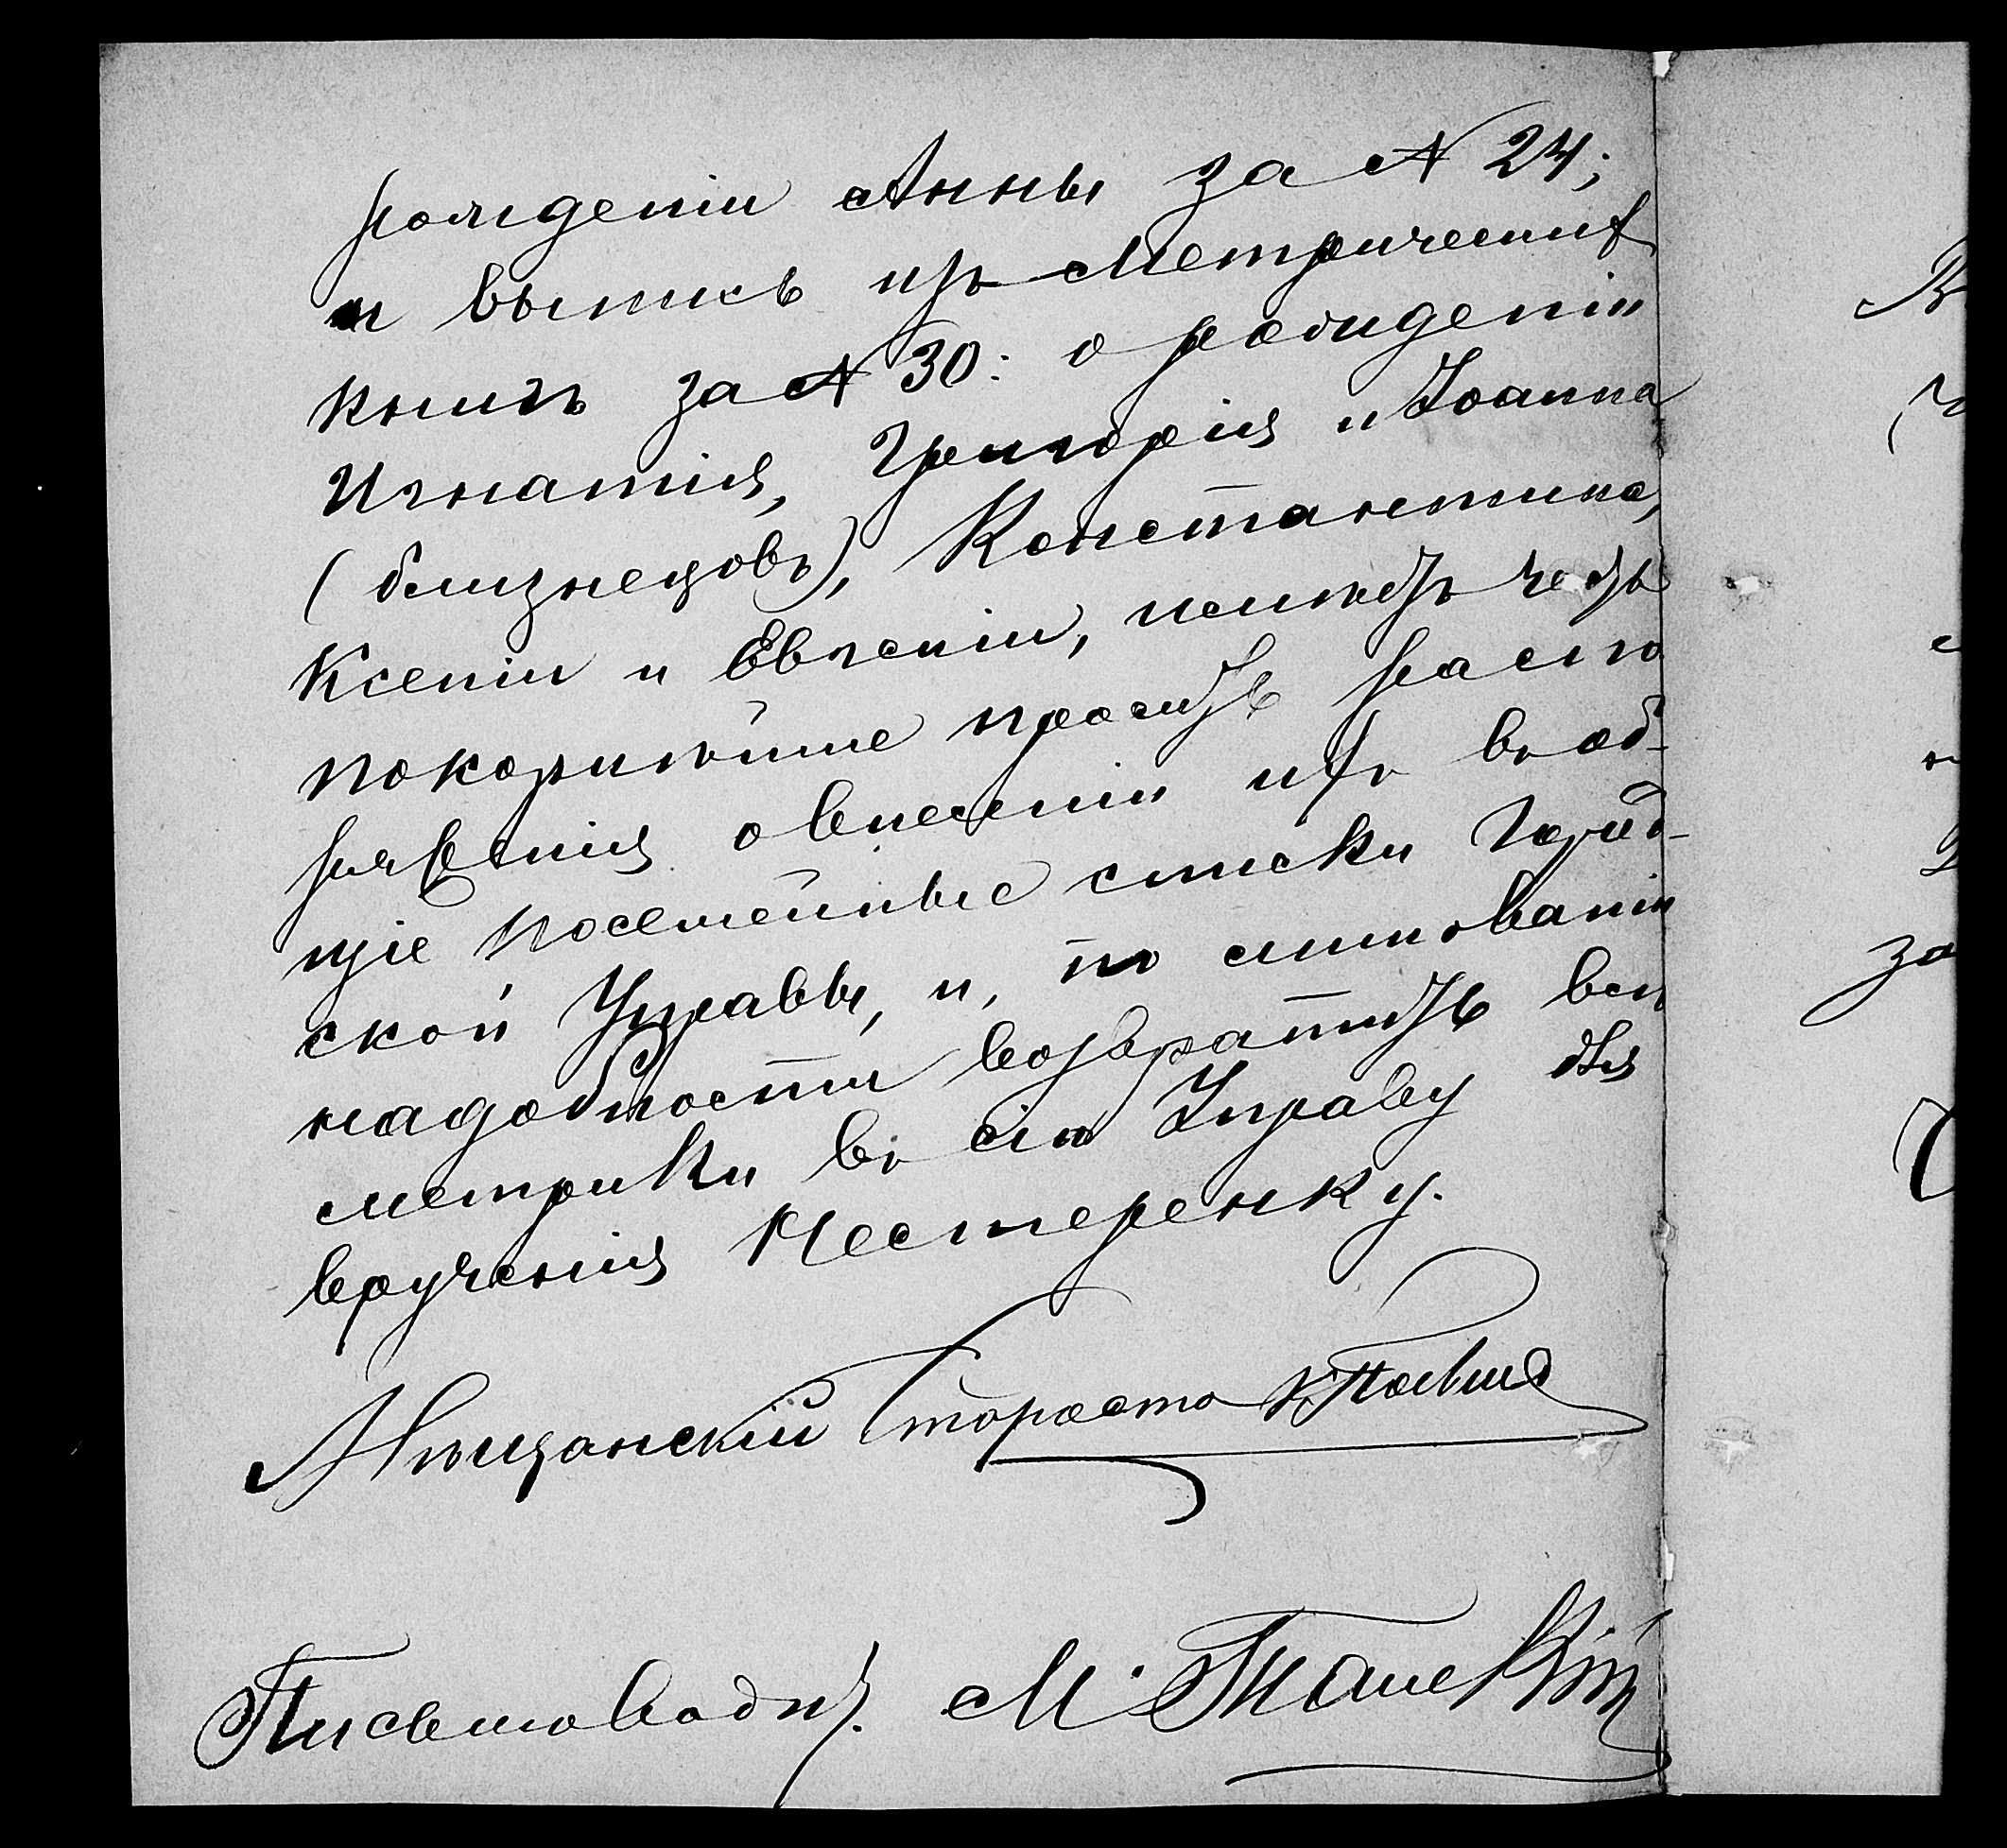 рожденіи Анны за № 24;
и выпись изъ Метрическихъ
книгъ за № 30: о рожденіи
Игнатія, Григорія и Іоанна
(близнецовъ), Константина,
Ксеніи и Евгеніи, имѣетъ честь
покорнѣйше просить распо
ряженія о внесеніи ихъ въ об-
щіе посемейные списки Город-
ской Управы, и, по минованіи
надобности возвратить всѣ
метрики въ сію Управу для
врученія Нестеренку.
Мѣщанскій Староста
Письмоводит. М.